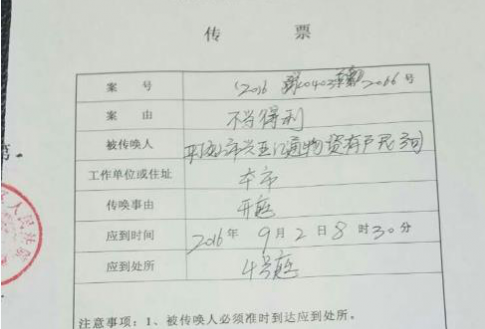 传 票
案 号 (2016 豫0403 2066 号
案 由 不当得利
被传唤人 平顶山市兴亚汇通物资有限公司
工作单位或住址 本市
传唤事由 开庭
应到时间 2016年 9月 2日 8时30分
应到处所 4号庭
注意事项：1、被传唤人必须准时到达应到处所。